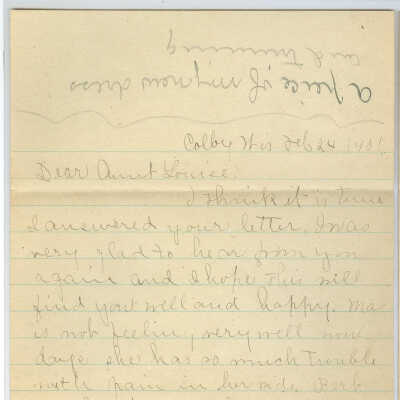 a peice of my new dress
and trimming
Colby Wis Feb 24 1901
Dear Aunt Louise:
I think it is time
I answered your letter. I was
very glad to hear from you
again and I hope this will
find you well and happy. Ma
is not feeling very well now
days she has so much trouble
with pain in her side. Bert